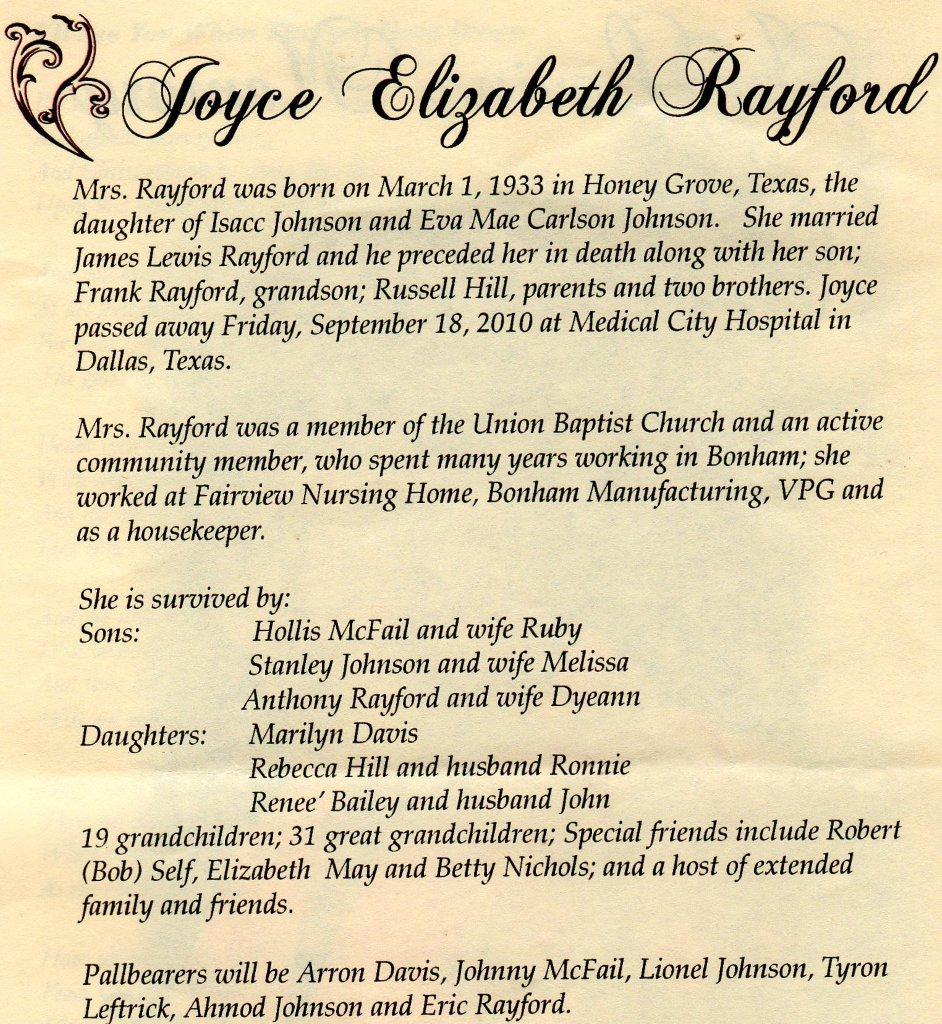 Joyce Elizabeth Rayford
Mrs. Rayford was born on March 1, 1933 in Honey Grove, Texas, the
daughter of Isacc Johnson and Eva Mae Carlson Johnson. She married
James Lewis Rayford and he preceded her in death along with her son;
Frank Rayford, grandson; Russell Hill, parents and two brothers. Joyce
passed away Friday, September 18, 2010 at Medical City Hospital in
Dallas, Texas.
Mrs. Rayford was a member of the Union Baptist Church and an active
community member, who spent many years working in Bonham; she
worked at Fairview Nursing Home, Bonham Manufacturing, VPG and
as a housekeeper.
She is survived by:
Sons: Hollis McFail and wife Ruby
Stanley Johnson and wife Melissa
Anthony Rayford and wife Dyeann
Daughters: Marilyn Davis
Rebecca Hill and husband Ronnie
Renee' Bailey and husband John
19 grandchildren; 31 great grandchildren; Special friends include Robert
(Bob) Self, Elizabeth May and Betty Nichols; and a host of extended
family and friends.
Pallbearers will be Arron Davis, Johnny McFail, Lionel Johnson, Tyron
Leftrick, Ahmod Johnson and Eric Rayford.